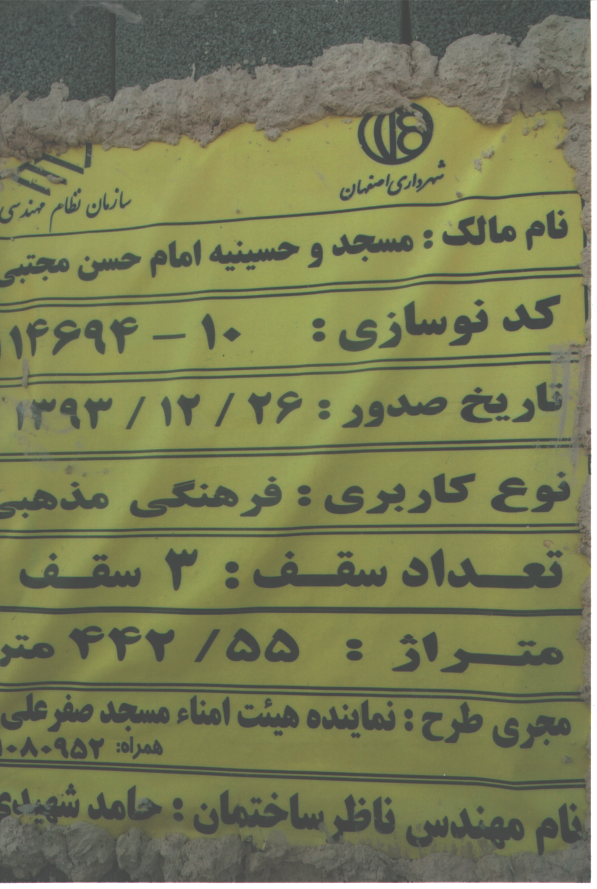 شهرداری اصفهان
سازمان نظام مهندسی
نام مالک : مسجد و حسینیه امام حسن مجتبی
کد نوسازی : ۱۰ – ۱۱۴۶۹۴
تاریخ صدور : ۲۶ / ۱۲ / ۱۳۹۳
نوع کاربری : فرهنگی مذهبی
تعداد سقف : ۳ سقف
متراژ : ۵۵ / ۴۴۲ متر
مجری طرح : نماینده هیئت امناء مسجد صفرعلی
همراه: ۱۰۸۰۹۵۲
نام مهندس ناظر ساختمان : حامد شهیدی